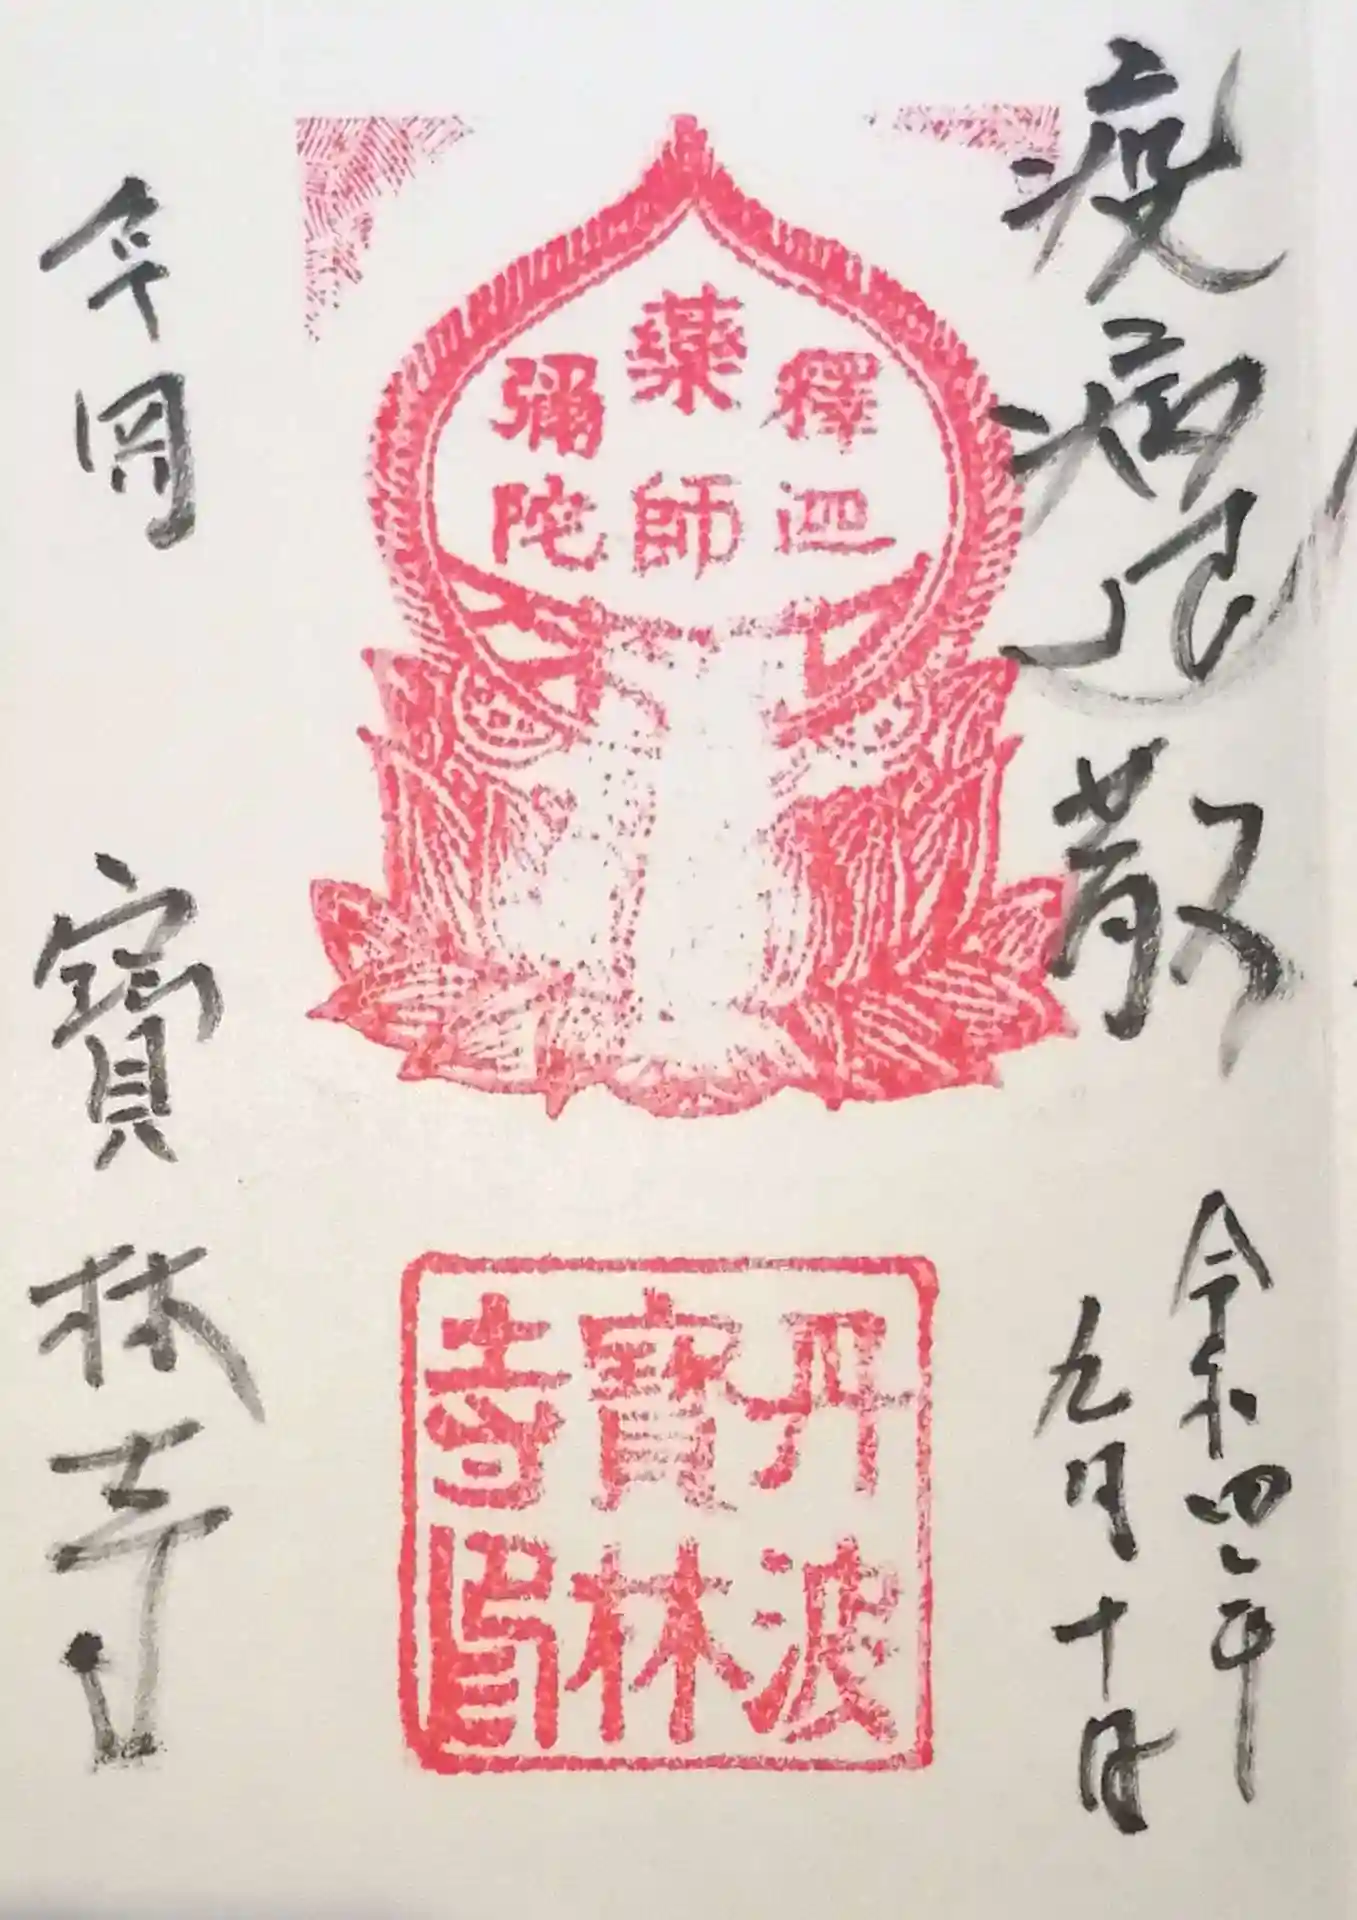 疫病退散
令和四年
九月十日
釋迦
藥師
彌陀
丹波
寶林
寺印
亀岡 寶林寺